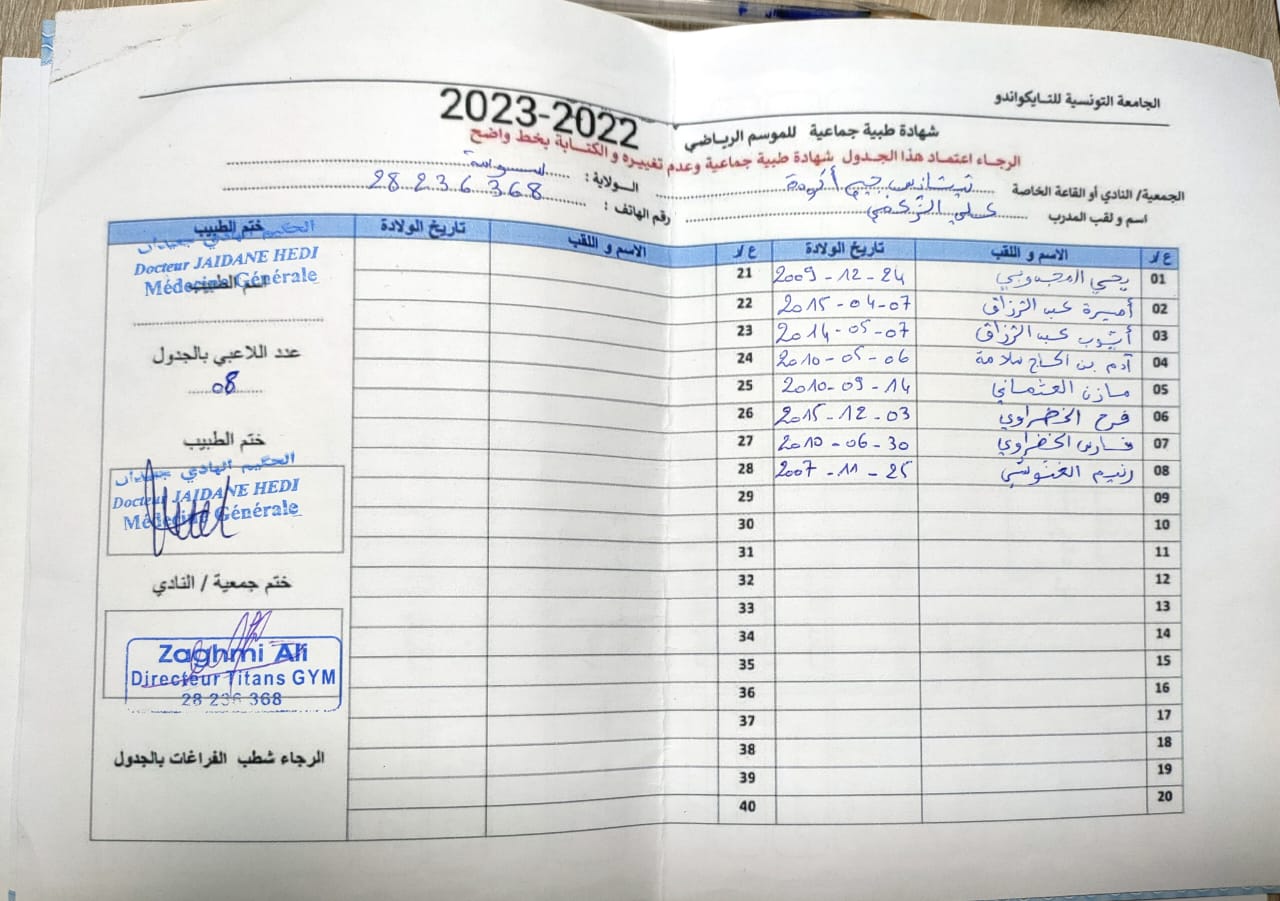 الجامعة التونسية للتايكواندو
شهادة طبية جماعية للموسم الرياضي 2023-2022
الرجاء اعتماد هذا الجدول شهادة طبية جماعية وعدم تغييره و الكتابة بخط واضح
الجمعية/ النادي أو القاعة الخاصة تيتانيس جيم أكودة
الولاية : سوسة
اسم و لقب المدرب علي الزغمي
رقم الهاتف : 28 236 368
ع/ر الاسم و اللقب تاريخ الولادة ع/ر الاسم و اللقب تاريخ الولادة ختم الطبيب
01 يحي المحجوبي 2009-12-24 21
02 أميرة عبد الرزاق 2015-04-07 22
03 أيوب عبد الرزاق 2014-05-07 23
04 آدم بن الحاج سلامة 2010-05-06 24
05 مازن العثماني 2010-09-14 25
06 فرح الخضراوي 2015-12-03 26
07 فارس الخضراوي 2010-06-30 27
08 رنيم الغنوشي 2007-11-25 28
09 29
10 30
11 31
12 32
13 33
14 34
15 35
16 36
17 37
18 38
19 39
20 40
الحكيم الهادي جعيدان
Docteur JAIDANE HEDI
Médecine Générale
اسم الطبيب
عدد اللاعبي بالجدول
08
ختم الطبيب
الحكيم الهادي جعيدان
Docteur JAIDANE HEDI
Médecine Générale
ختم جمعية / النادي
Zaghmi Ali
Directeur Titans GYM
28 236 368
الرجاء شطب الفراغات بالجدول